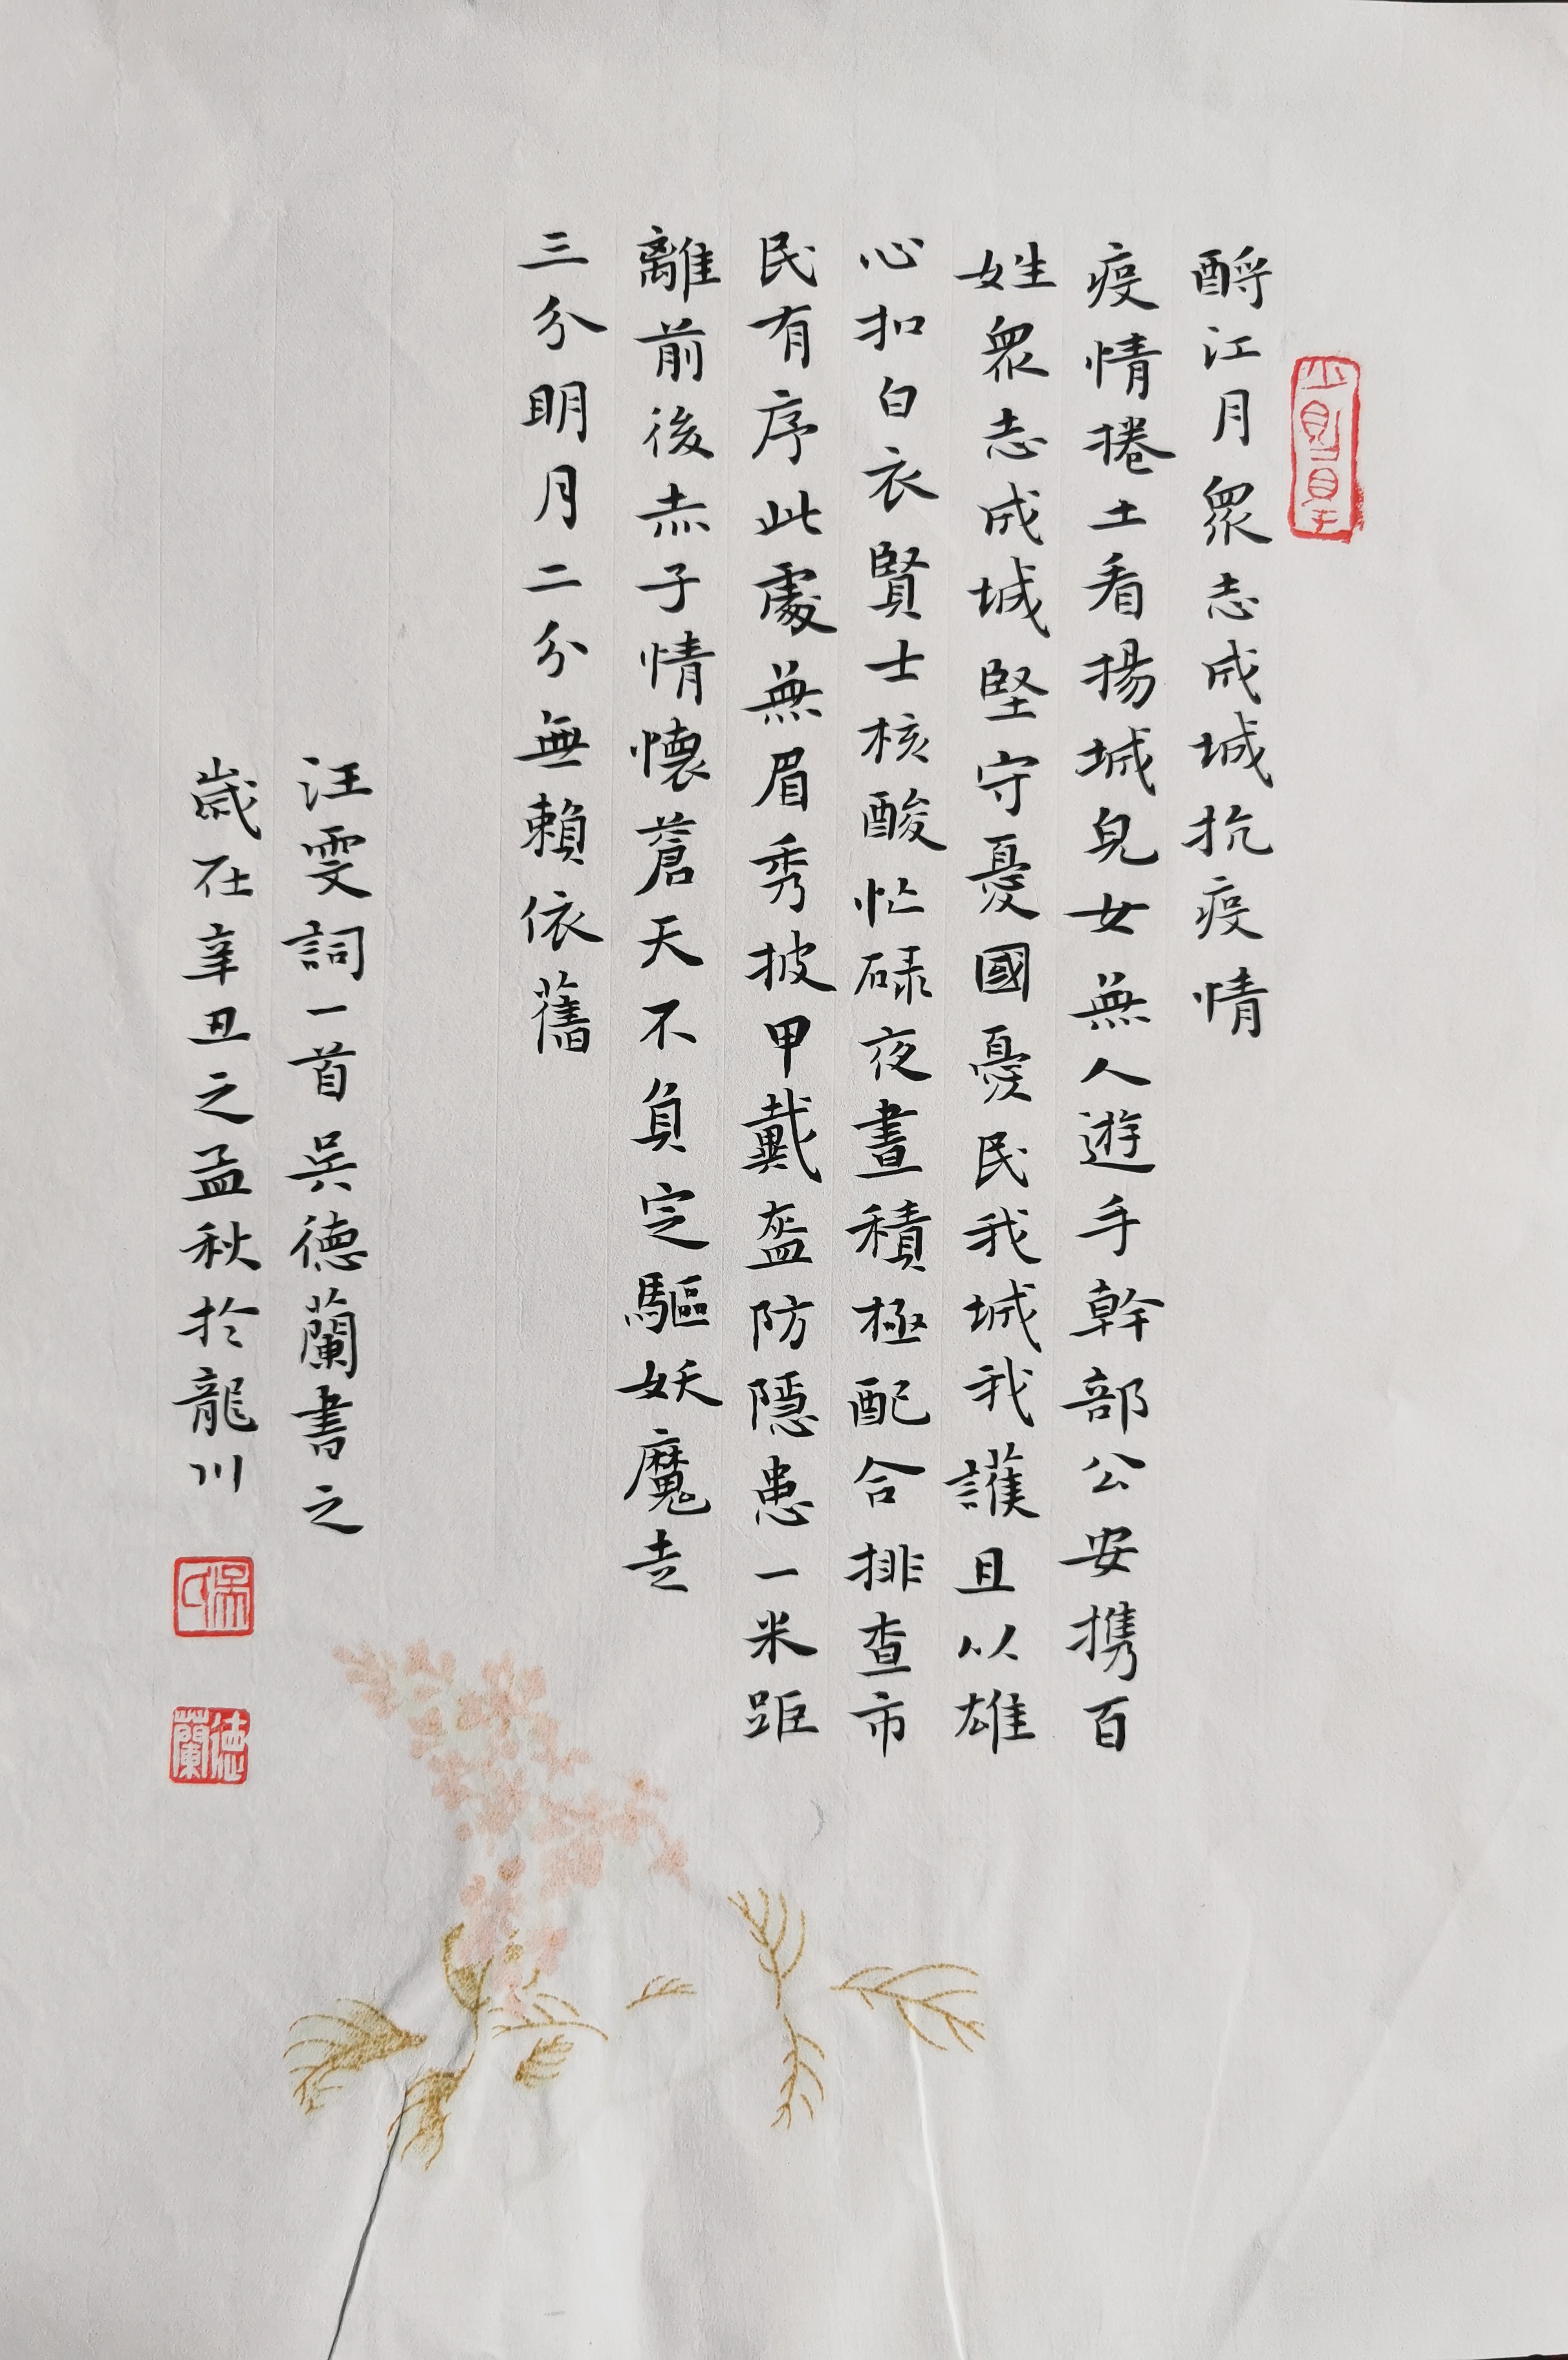 酹江月眾志成城抗疫情
疫情捲土看揚城兒女無人遊手幹部公安攜百
姓眾志成城堅守憂國憂民我城我護且以雄
心扣白衣賢士核酸忙碌夜晝積極配合排查市
民有序此處無眉秀披甲戴盔防隱患一米距
離前後赤子情懷蒼天不負定驅妖魔走
三分明月二分無賴依舊
汪雯詞一首吳德蘭書之
歲在辛丑之孟秋於龍川
吳氏
德蘭